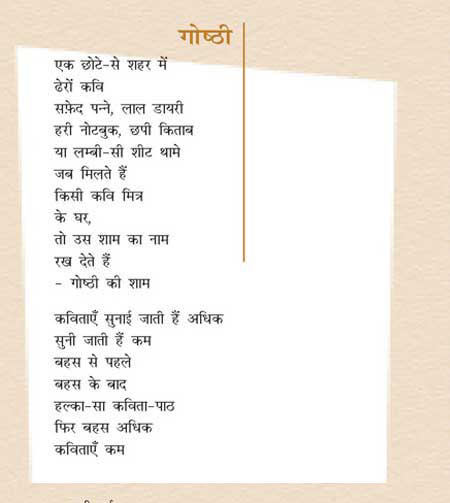 गोष्ठी
एक छोटे-से शहर में
ढेरों कवि
सफ़ेद पन्ने, लाल डायरी
हरी नोटबुक, छपी किताब
या लम्बी-सी शीट थामे
जब मिलते हैं
किसी कवि मित्र
के घर,
तो उस शाम का नाम
रख देते हैं
- गोष्ठी की शाम
कविताएँ सुनाई जाती हैं अधिक
सुनी जाती हैं कम
बहस से पहले
बहस के बाद
हल्का-सा कविता-पाठ
फिर बहस अधिक
कविताएँ कम